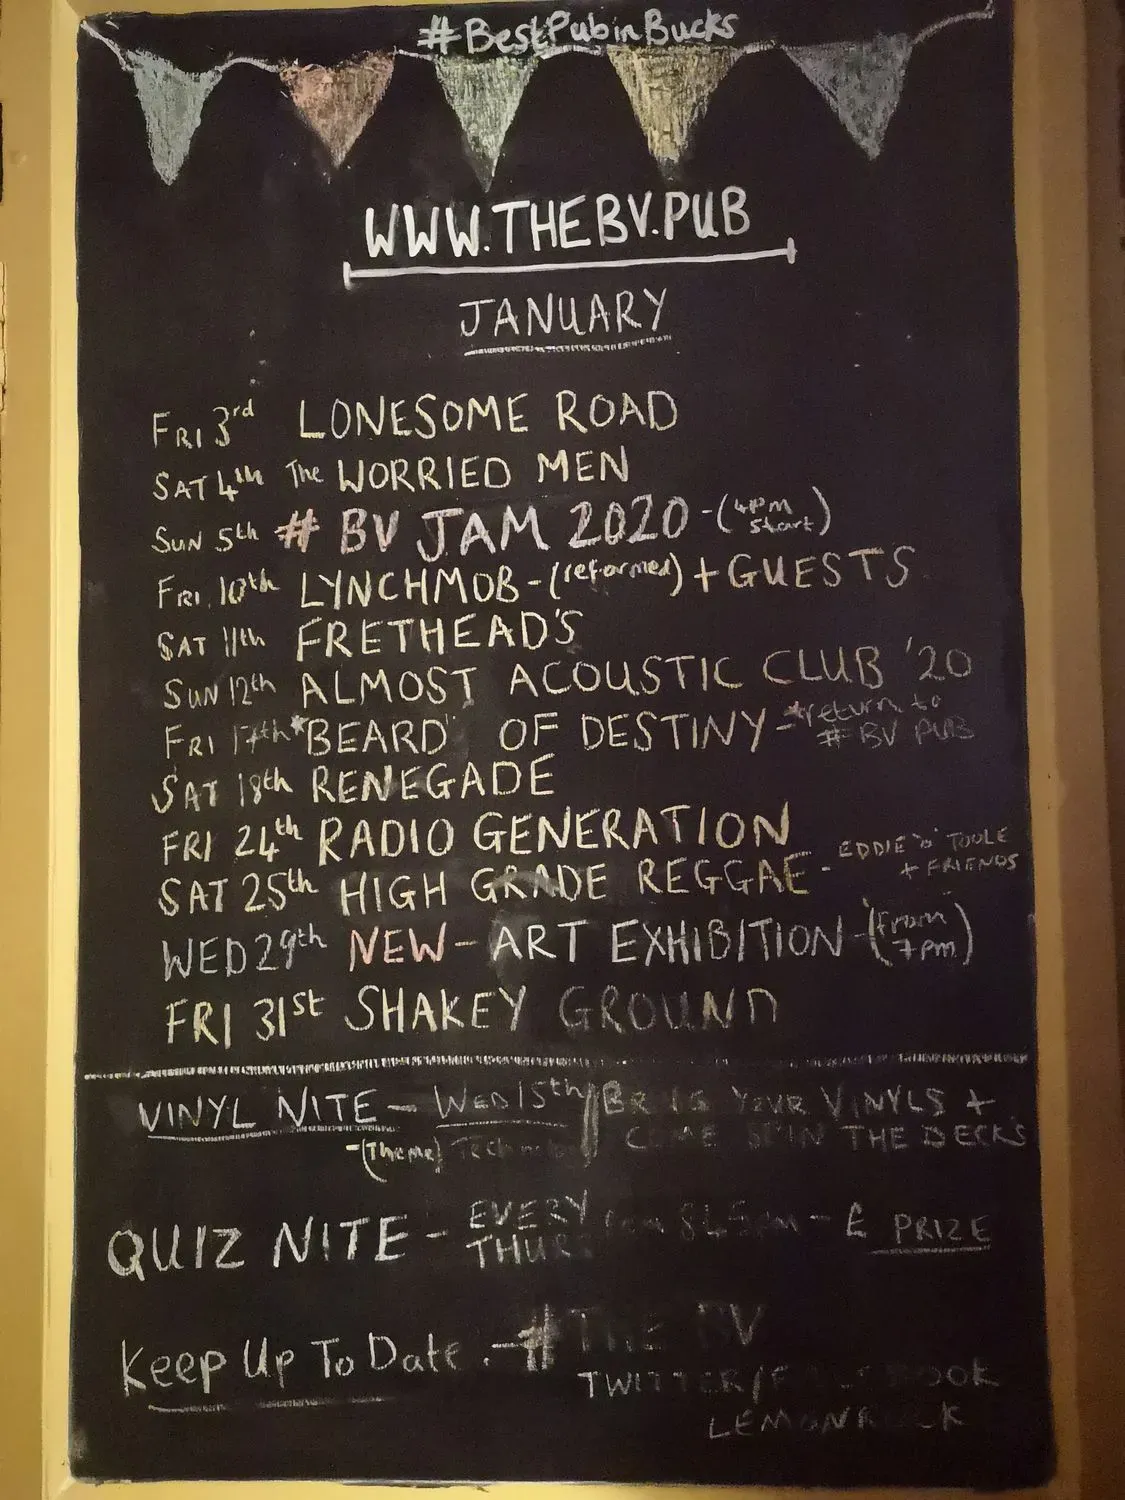 #BestPubinBucks
WWW.THEBV.PUB
JANUARY
FRI 3rd LONESOME ROAD
SAT 4th The WORRIED MEN
SUN 5th # BV JAM 2020 - (4pm start)
FRI. 10th LYNCHMOB - (reformed) + GUESTS
SAT 11th FRETHEAD'S
SUN 12th ALMOST ACOUSTIC CLUB '20
FRI 17th * "BEARD" OF DESTINY - *return to # BV PUB
SAT 18th RENEGADE
FRI 24th RADIO GENERATION
SAT 25th HIGH GRADE REGGAE - EDDIE 'O' TOOLE + FRIENDS
WED 29th NEW - ART EXHIBITION - (from 7pm)
FRI 31st SHAKEY GROUND
VINYL NITE - WED 15th // BRING YOUR VINYLS +
-(Theme) COME SPIN THE DECKS
QUIZ NITE - EVERY THURS 845pm - £ PRIZE
Keep Up To Date - # THE BV
TWITTER/FACEBOOK
LEMONROCK